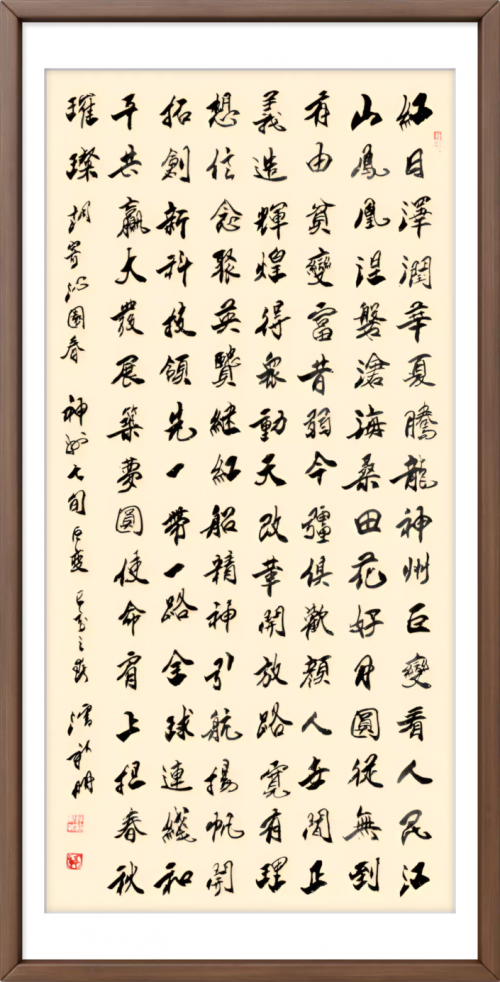 紅日澤潤華夏騰龍神州巨變看人民江
山鳳凰涅磐滄海桑田花好月圓從無到
有由貧變富昔弱今彊俱歡顏人世間正
義造輝煌得衆動天改革開放路寬有理
想信念聚英賢継紅船精神引航揚帆開
拓創新科技領先一帶一路全球連綫和
平共贏大發展築夢圓使命肩上担春秋
璀璨 調寄沁園春 神州七旬巨變 己亥之秋